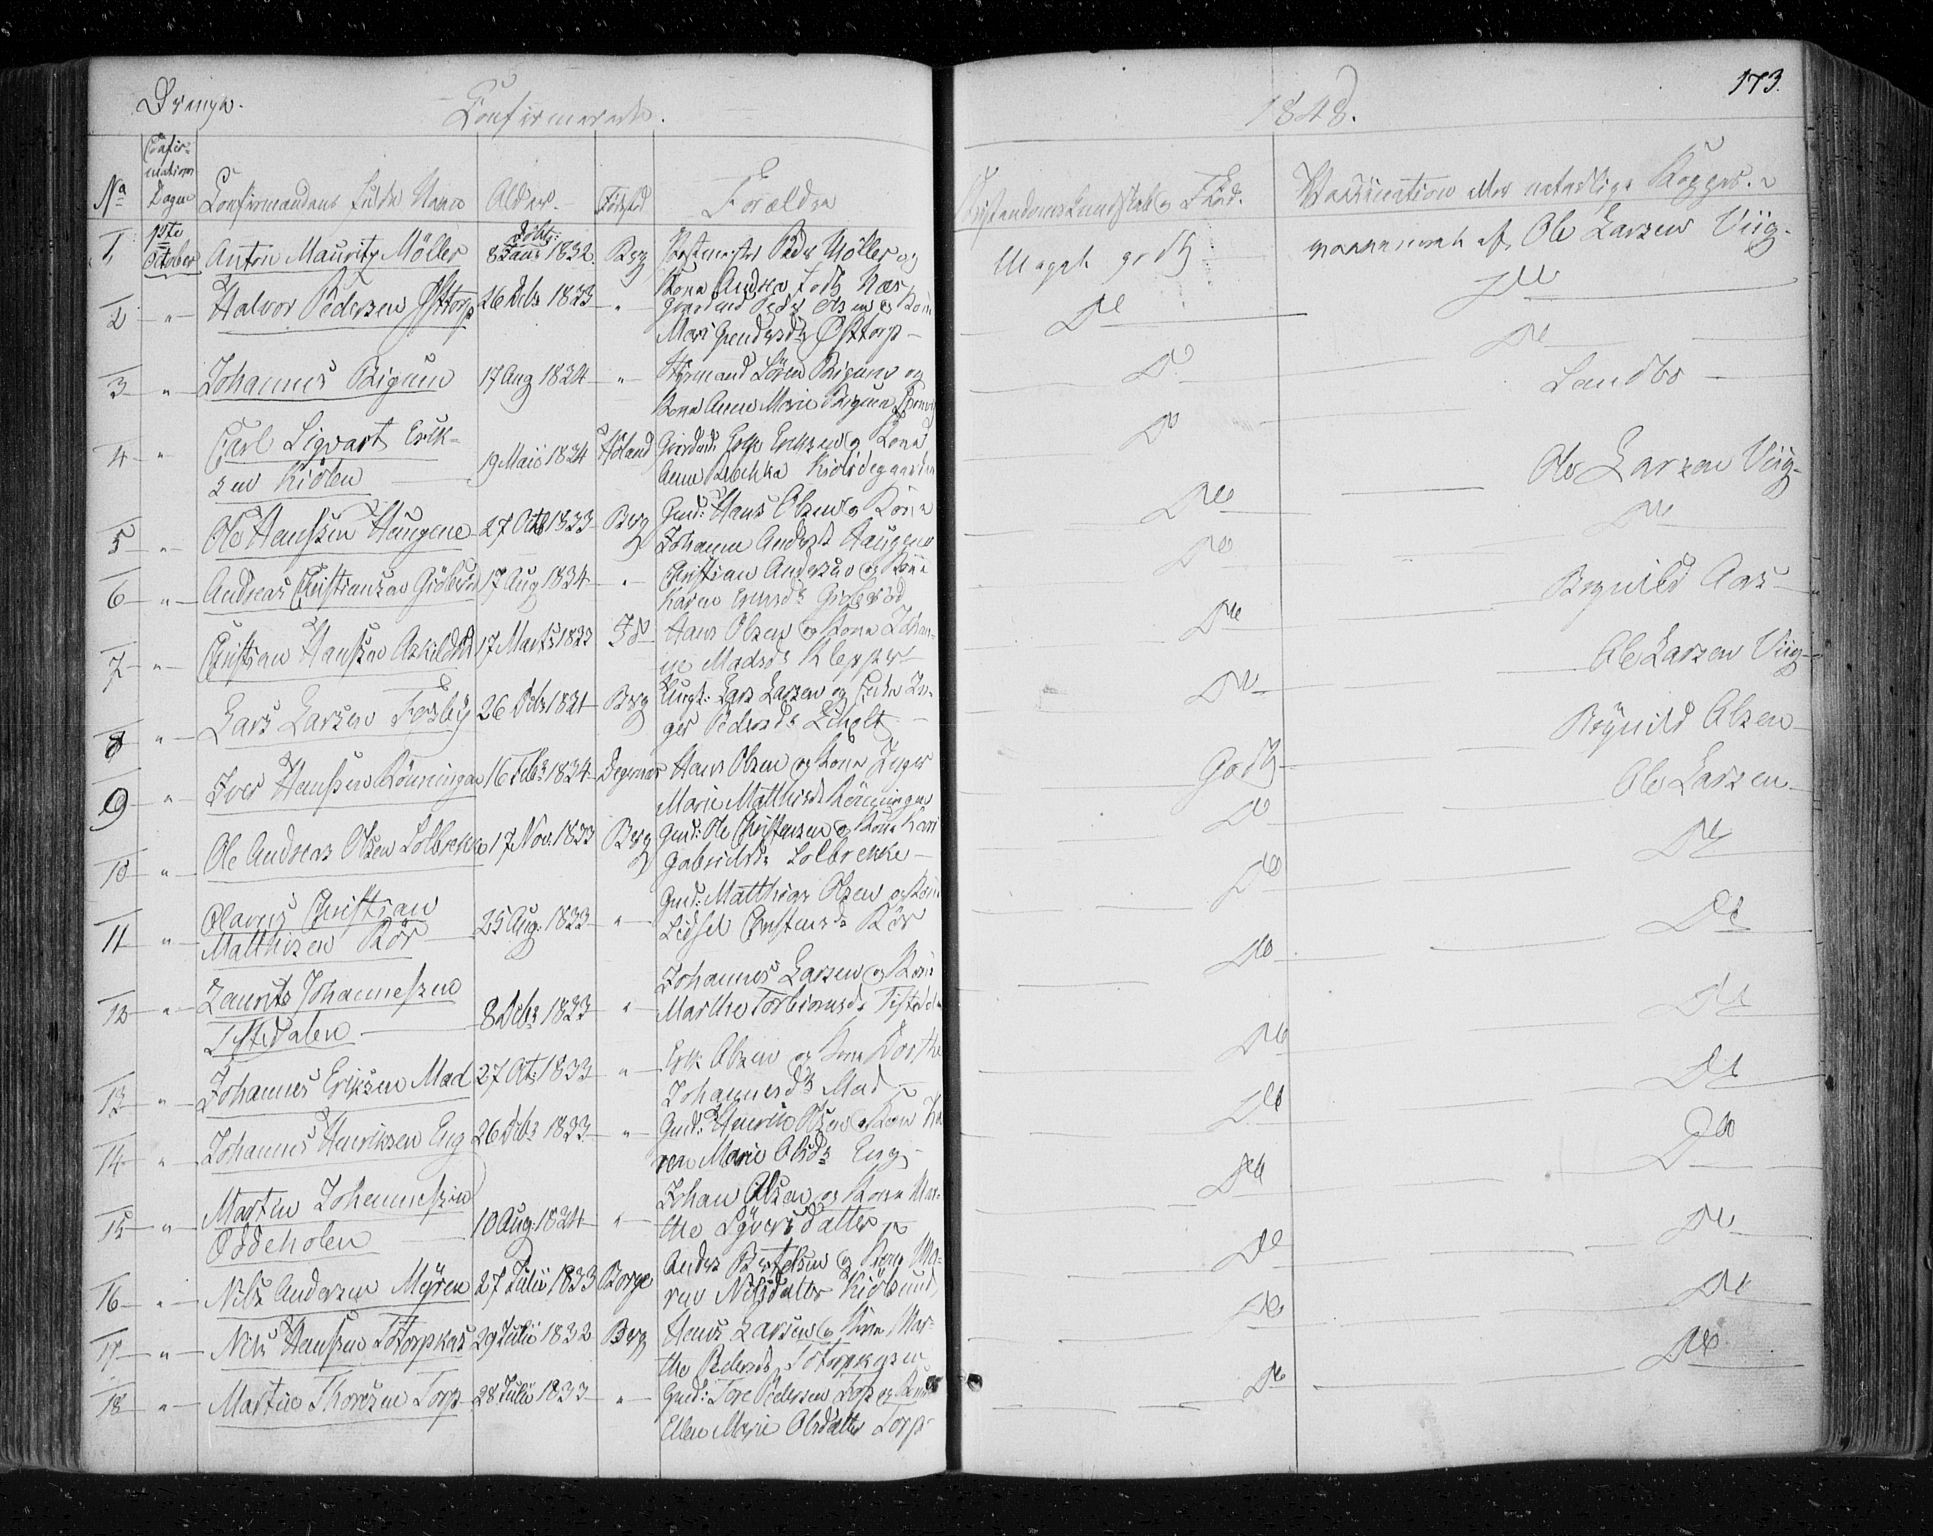 Drenge.
Confirmerede.
1848.
173.
No
Confir-
mations
Dagen
Confirmandens fulde Navn
Alder.
Födsted
Forældre
Christendoms Kundskab og Flid.
Vaccination eller naturlige Kopper.
1
1ste October
Anton Mauritz Möller
döbt:
8 Janr 1832.
Berg
Peder Möller og
Kone Andrea
Meget godt
vaccineret af Ole Larsen Viig-
2
Halvor Pedersen Østtorp
26 Debr 1833
Gaardmd Peder Olsen og Kone
Mari Østtorp
Do
Do
3
Johannes Bigum
17 Aug 1834
Styrmand Sören Bigum og
Kone Anne Marie Bigum
Do
Do
Landbo
4
Carl Sigvart Erik-
sen Kiölen
19 Maii 1834
Höland
Erik Eriksen og Kone
Anne
Do
Ole Larsen Viig-
5
Ole Hanssen Haugene
27 Octb 1833
Berg
Gmd: Hans Olsen og Kone
Johanne Andersd Haugene
Do
Do
6
Andreas Christiansen
17 Aug 1834
Christian Andersen og Kone
Karen
Do
Brynild Aas
7
Christian Hanssen
17 Marts 1833
Id
Hans Olsen og Kone Johan-
ne Madsd Klepper
Do
Ole Larsen Viig
8
Lars Larsen Forsby
26 Debr 1831
Berg
Ungk: Lars Larsen og In-
ger Pedersd
Do
Brynild Olsen
9
Iver Hanssen Rönningen
16 Febr 1834
Degernes
Hans Olsen og Kone Inger
Marie Matthisd Rönningen
Godt
Ole Larsen
10
Ole Andreas Olsen Solbrekke
17 Nov. 1833
Berg
Gmd: Ole Christensen og Kone Kari
Gabrielsd: Solbrekke
Do
Do
11
Olaves Christian
Matthisen Rör
25 Aug: 1833
Gmd: Matthias Olsen og Kone
Sidsel Christensd: Rör
Do
Do
12
Laurits Johannessen
Tistedalen
8 Debr 1833
Johannes Larsen og Kone
Marthe Torbiörnsd: Tistedalen
Do
Do
13
Johannes Eriksen Mad
27 Oct: 1833
Erik Olsen og Kone Dorthe
Johannesd: Mad
Do
Do
14
Johannes Henriksen Eng
26 Debr 1833
Gmd: Henrik Olsen og Kone Ka-
ren Marie Olsd: Eng
Do
Do
15
Martin Johannessen
Oddeholen
10 Aug: 1834
Johan Olsen og Kone Mar-
the Syversdatter
Do
Do
16
Nils Andersen Myren
27 Julii 1833
Borge
Anders Bertelsen og Kone Ma-
ren Nilsdatter
Do
Do
17
Nils Hanssen Totorpkas
29 Julii 1832
Berg
Hans Larsen og Kone Mar-
the Pedersd: Totorpkasen
Do
Do
18
Martin Thoresen Torp
28 Julii 1833
Gmd: Tore Pedersen Torp og Kone
Ellen Marie Olsdatter Torp
Do
Do